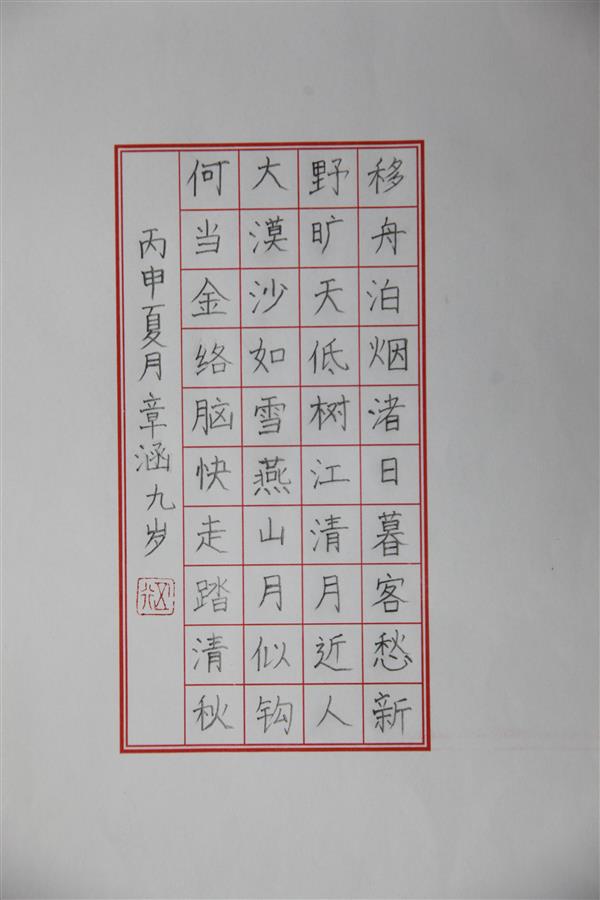 移舟泊烟渚日暮客愁新
野旷天低树江清月近人
大漠沙如雪燕山月似钩
何当金络脑快走踏清秋
丙申夏月章涵九岁